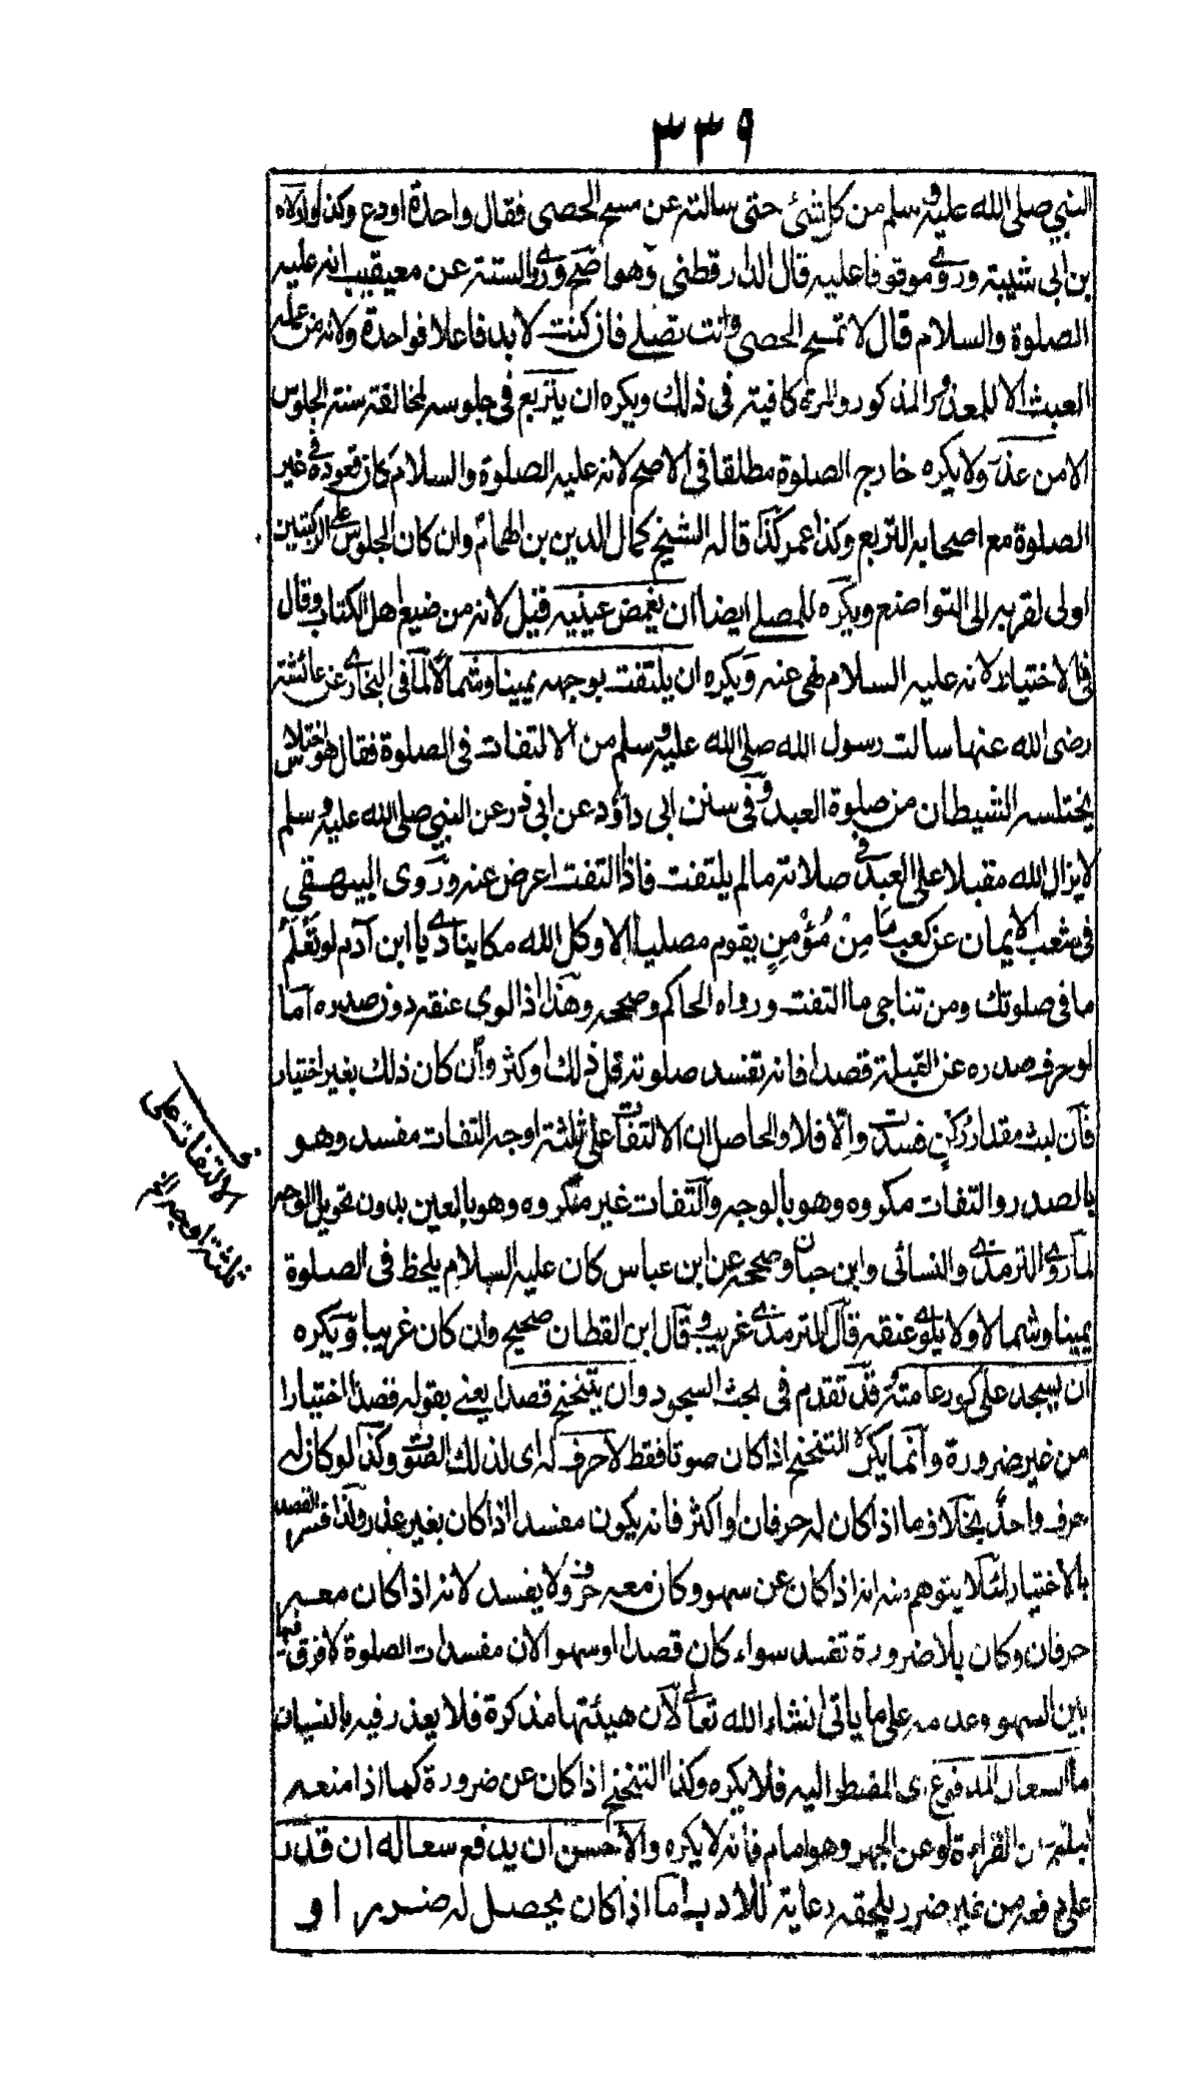 ٣٣٩
النبي صلى الله عليه وسلم من كل شئ حتى سالته عن مسح الحصى فقال واحدة اودع وكذا رواه
بن ابى شيبة وروى موقوفا عليه قال الدارقطنى وهو اصح وروى الستة عن معيقيب انه عليه
الصلوة والسلام قال لا تمسح الحصى وانت تصلى فان كنت لا بد فاعلا فواحدة ولانه من
العبث الا للعذر المذكور والمرة كافية فى ذلك ويكره ان يتربع فى جلوسه لمخالفته سنة الجلوس
الا من عذر ولا يكره خارج الصلوة مطلقا فى الاصح لانه عليه الصلوة والسلام كان قعوده فى غير
الصلوة مع اصحابه التربع وكذا عمر كذا قاله الشيخ كمال الدين بن الهمام وان كان الجلوس على الركبتين
اولى لقربه الى التواضع ويكره للمصلى ايضا ان يغمض عينيه قيل لانه من ضيع اهل الكتاب وقال
فى الاختيار لانه عليه السلام نهى عنه ويكره ان يلتفت بوجهه يمينا وشمالا لما فى البخارى عن عائشة
رضى الله عنها سالت رسول الله صلى الله عليه وسلم من الالتفات فى الصلوة فقال هو اختلاس
يختلسه الشيطان من صلوة العبد وفى سنن ابى داؤد عن ابى ذر عن النبي صلى الله عليه وسلم
لا يزال الله مقبلا على العبد فى صلاته ما لم يلتفت فاذا التفت اعرض عنه وروى البيهقي
فى شعب الايمان عن كعب مَا مِنْ مُؤْمِنٍ يقوم مصليا الا وكل الله ملكا ينادى يا ابن آدم لو تَعْلَمُ
ما فى صلوتك ومن تناجى ما التفت ورواه الحاكم وصححه وهذا اذا لوى عنقه دون صدره اما
لو حرف صدره عن القبلة قصدا فانه تفسد صلوته قل ذلك او كثر وان كان ذلك بغير اختيار
فان لبث مقدار ركنٍ فسدت والّا فلا والحاصل ان الالتفات على ثلثة اوجه التفات مفسد وهو
بالصدر والتفات مكروه وهو بالوجه والتفات غير مكروه وهو بالعين بدون تحويل الوجه
لما روى الترمذى والنسائى وابن حبان وصححه عن ابن عباس كان عليه السلام يلحظ فى الصلوة
يمينا وشمالا ولا يلوى عنقه قال الترمذى غريب وقال ابن القطان صحيح وان كان غريبا ويكره
ان يسجد على كور عامته وقد تقدم فى بحث السجود وان يتنحنح قصدا يعنى بقوله قصدا اختيارا
من غير ضرورة وانما يكره التنحنح اذا كان صوتا فقط لا حرف له اى لذلك الصوت وكذا لو كان له
حرف واحد بخلاف ما اذا كان له حرفان او اكثر فانه يكون مفسدا اذا كان بغير عذر ولذا فسر القصد
بالاختيار لئلا يتوهم منه انه اذا كان عن سهو وكان معه حرف ولا يفسد لانه اذا كان معه
حرفان وكان بلا ضرورة تفسد سواء كان قصدا او سهوا لان مفسدات الصلوة لا فرق فيها
بين السهو وعدمه على ما ياتى انشاء الله تعالى لان هيئتها مذكرة فلا يعذر فيه بالنسيان
اما السعال المدفوع اى المضطر اليه فلا يكره وكذا التنحنح اذا كان عن ضرورة كما اذا منعه
البلغم عن القراءة او عن الجهر وهو امام فانه لا يكره والاحسن ان يدفع سعاله ان قدر
على دفعه من غير ضرر يلحقه رعاية للادب اما اذا كان يحصل له ضرر او
الالتفات على
ثلثة اوجه الخ